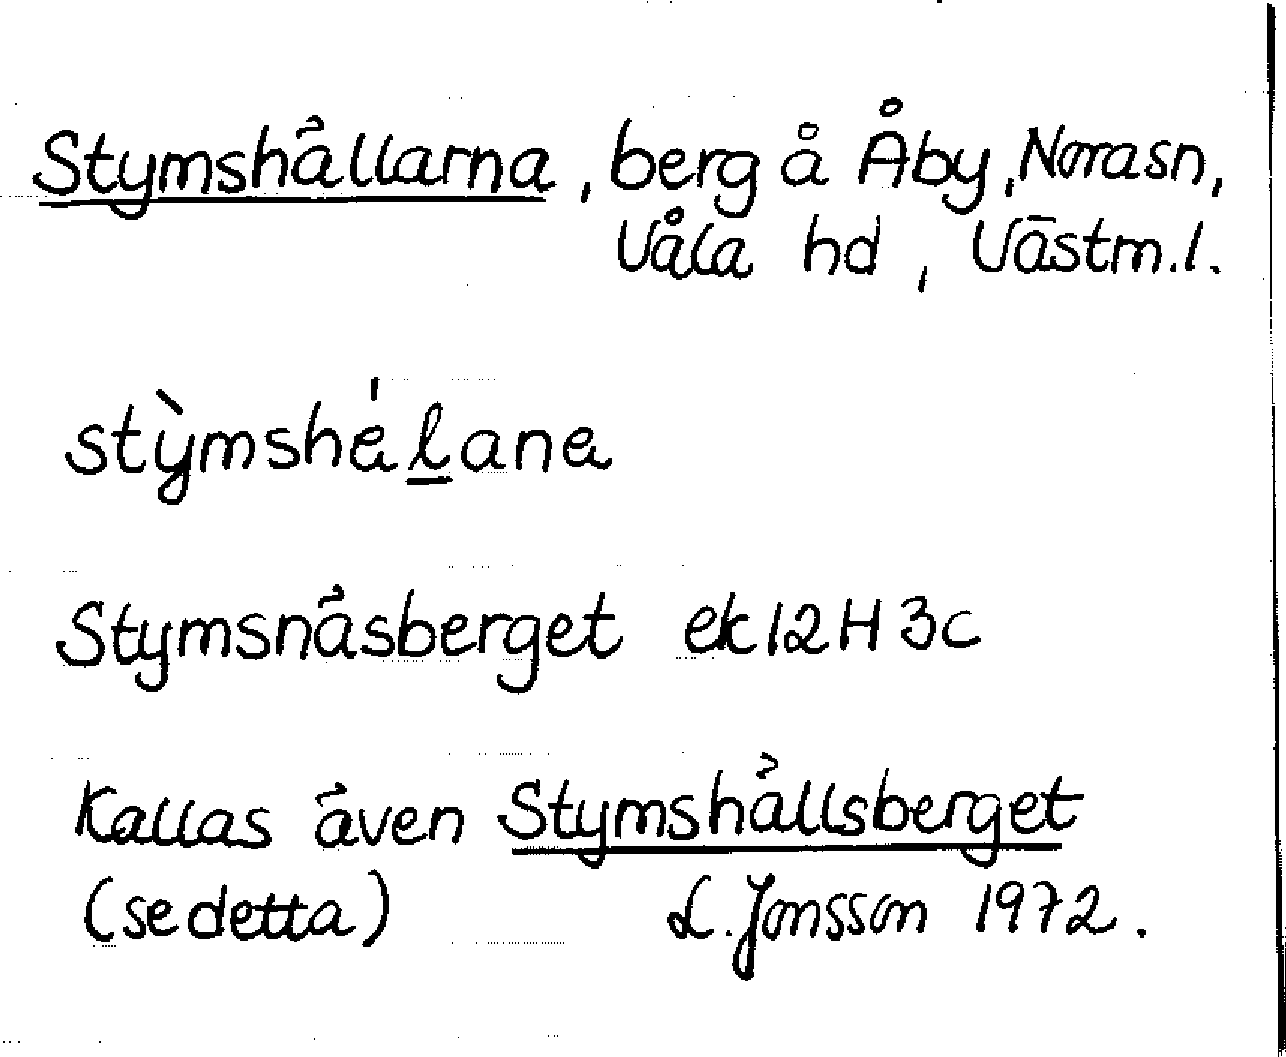 Stymshällarna, berg å Åby, Nora sn,
Våla hd, Västm. l.
stỳmshé̵lane
Stymsnäsberget ek 12H 3c
Kallas även Stymshällsberget
(se detta) L. Jonsson 1972.